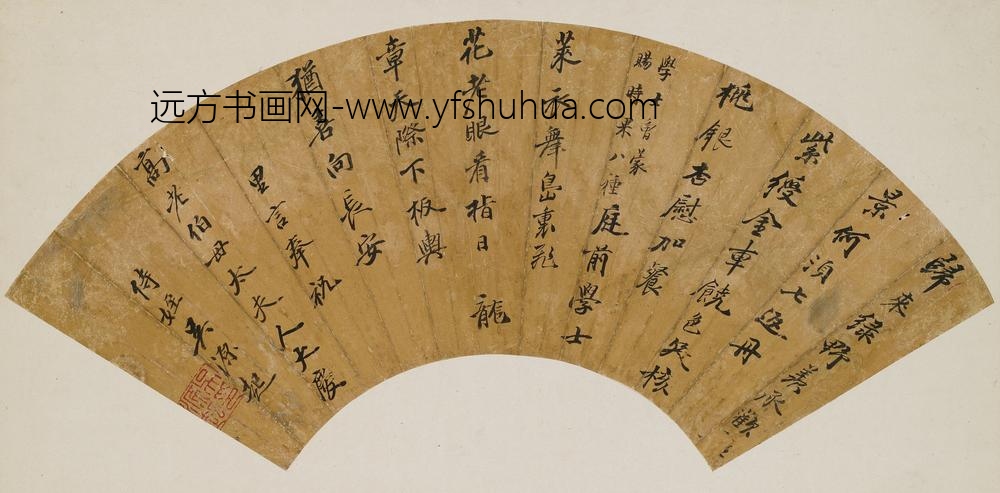 远方书画网-www.yfshuhua.com
歸來綠野羨承歡
景何須七返丹
紫綬金車饒色笑核
桃銀杏慰加餐
學士曾蒙
賜時果八種
庭前學士
萊衣舞島裏飛
花老眼看指日 龍
章天際下板輿
猶向長安
里言奉祝
高老伯母太夫人大慶
侍姪吳源起